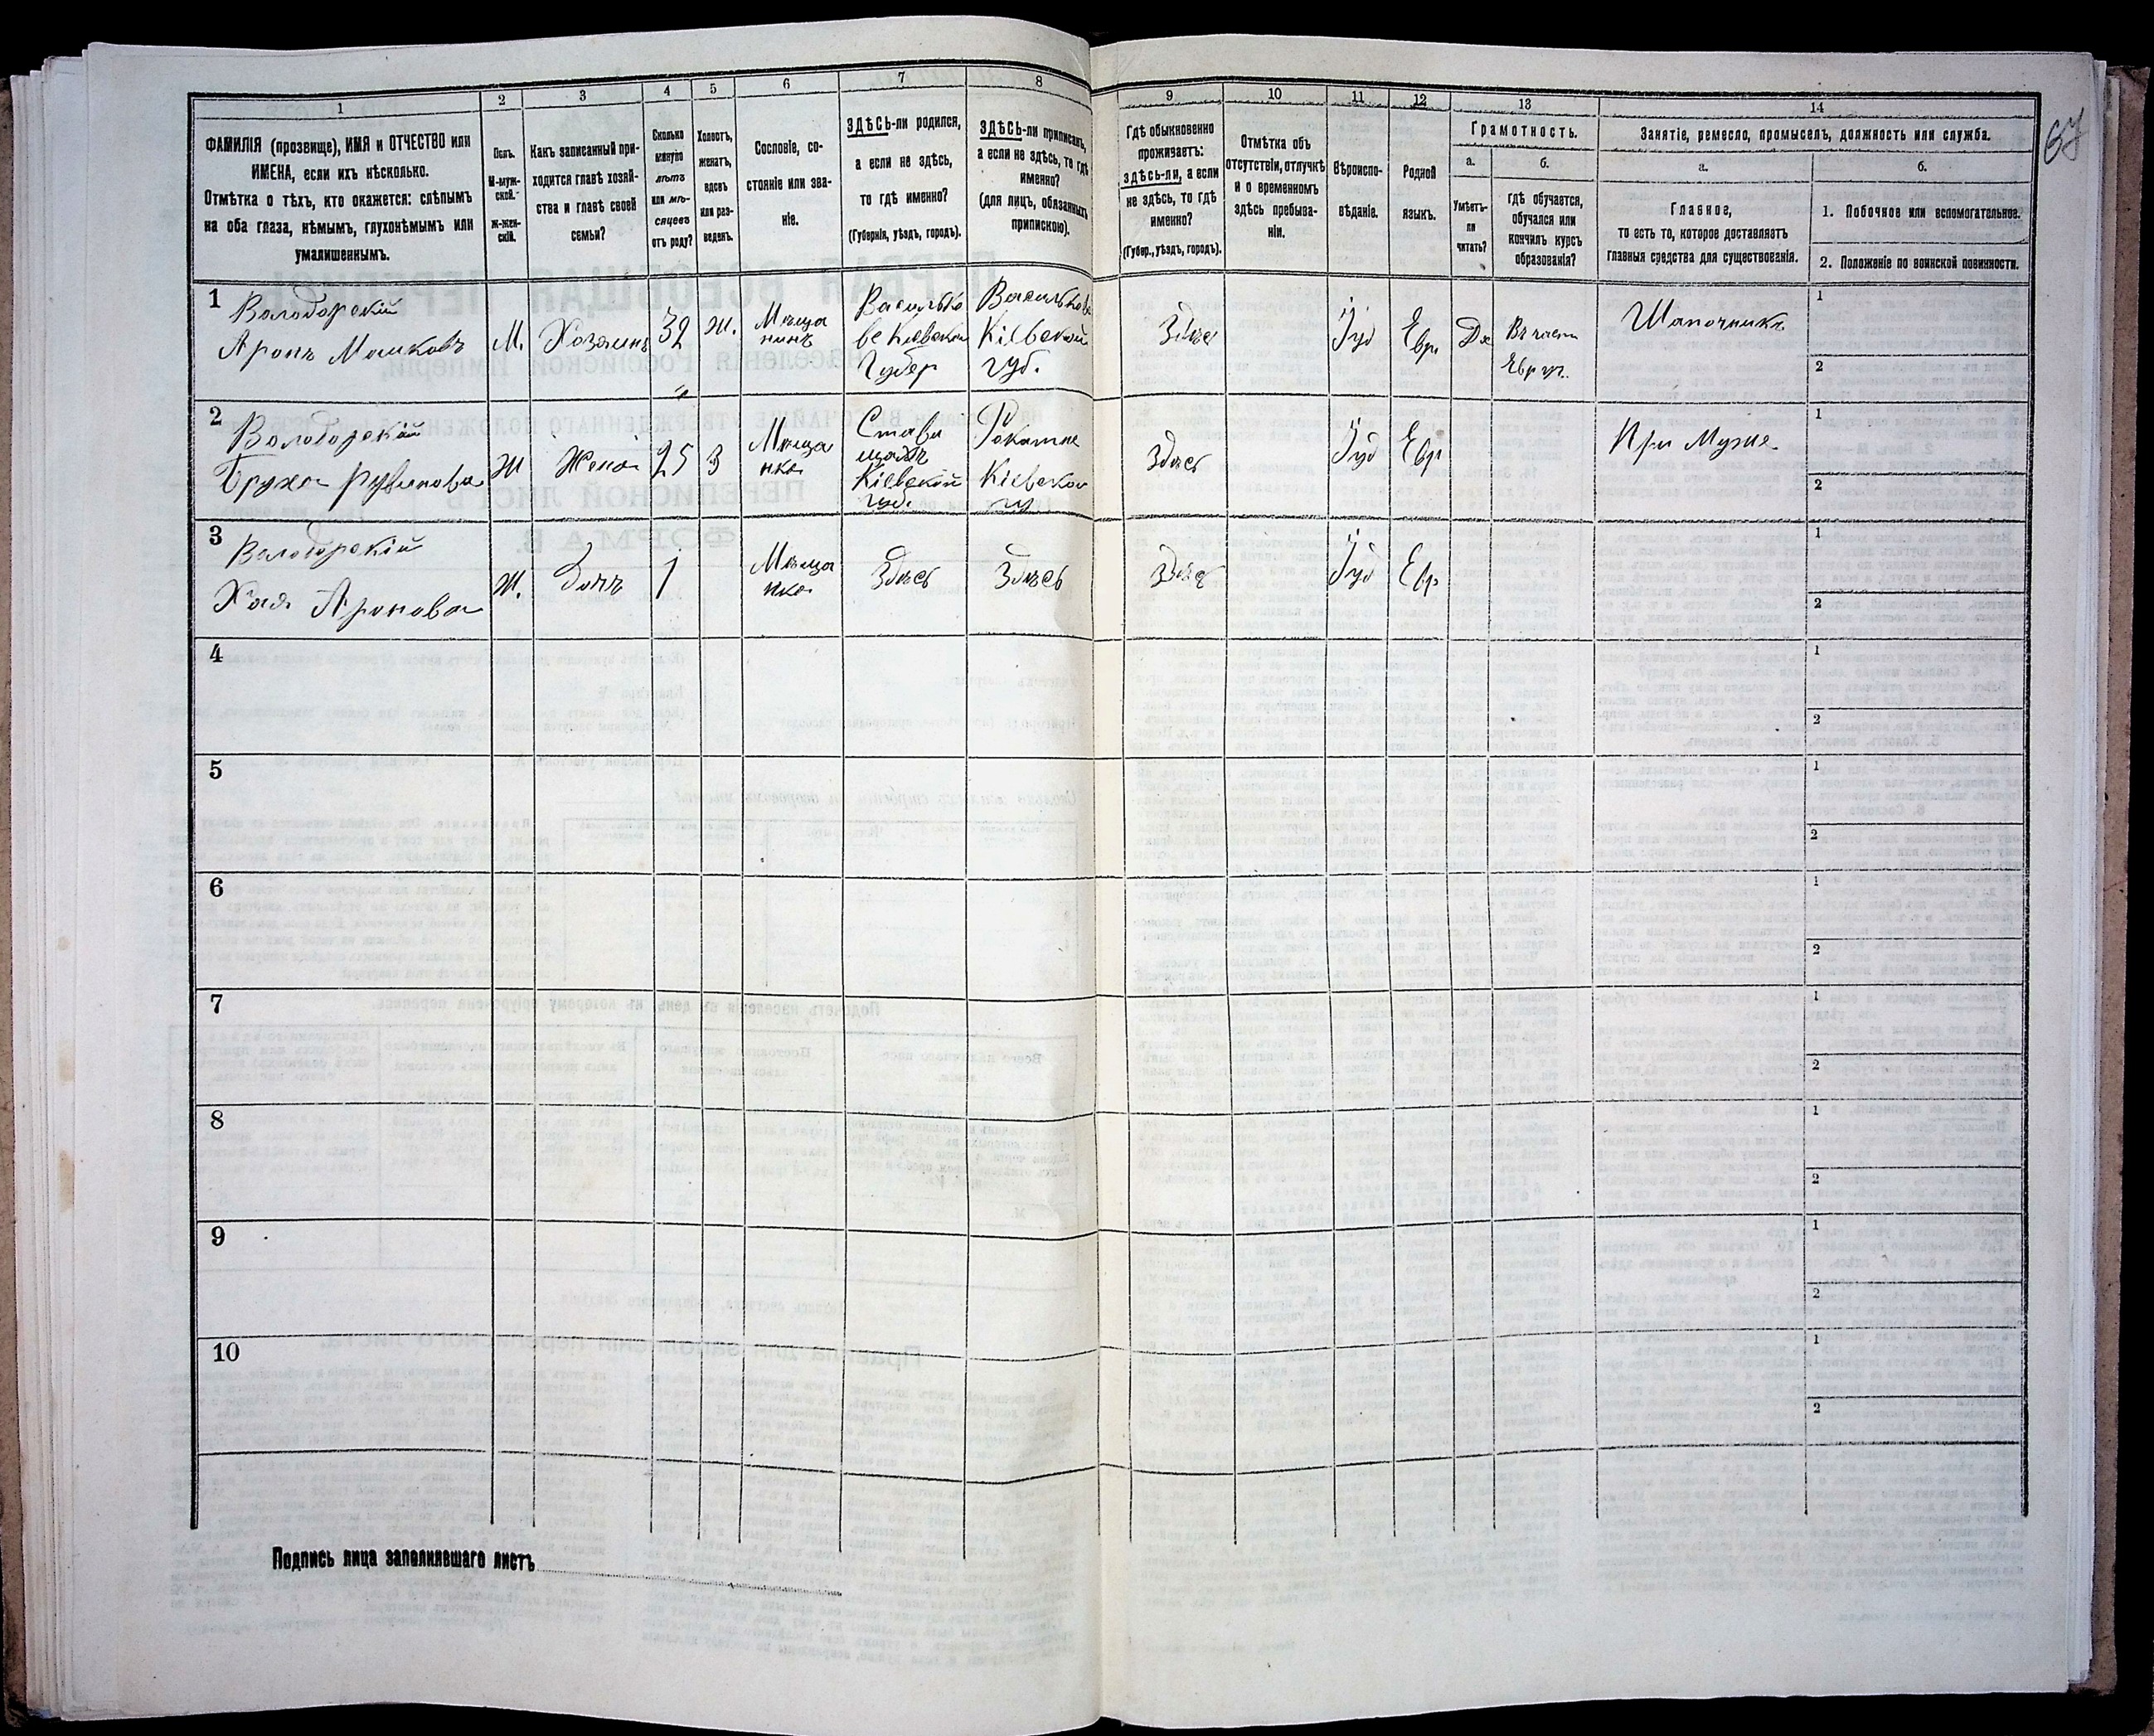 67
1
2
3
4
5
6
7
8
9
10
11
12
13
14
ФАМИЛІЯ (прозвище), ИМЯ и ОТЧЕСТВО или
ИМЕНА, если ихъ нѣсколько.
Отмѣтка о тѣхъ, кто окажется: слѣпымъ
на оба глаза, нѣмымъ, глухонѣмымъ или
умалишеннымъ.
Полъ.
М-муж-
ской.
Ж-жен-
скій.
Какъ записанный при-
ходится главѣ хозяй-
ства и главѣ своей
семьи?
Сколько
минуло
лѣтъ
или мѣ-
сяцевъ
отъ роду?
Холостъ,
женатъ,
вдовъ
или раз-
веденъ.
Сословіе, со-
стояніе или зва-
ніе.
ЗДѢСЬ-ли родился,
а если не здѣсь,
то гдѣ именно?
(Губернія, уѣздъ, городъ).
ЗДѢСЬ-ли приписанъ,
а если не здѣсь, то гдѣ
именно?
(для лицъ, обязанныхъ
припискою).
Гдѣ обыкновенно
проживаетъ:
здѣсь-ли, а если
не здѣсь, то гдѣ
именно?
(Губер., уѣздъ, городъ).
Отмѣтка объ
отсутствіи, отлучкѣ
и о временномъ
здѣсь пребыва-
ніи.
Вѣроиспо-
вѣданіе.
Родной
языкъ.
Грамотность.
а.
Умѣетъ-
ли
читать?
б.
гдѣ обучается,
обучался или
кончилъ курсъ
образованія?
Занятіе, ремесло, промыселъ, должность или служба.
а.
Главное,
то есть то, которое доставляетъ
главныя средства для существованія.
б.
1. Побочное или вспомогательное.
2. Положеніе по воинской повинности.
1
Володарскій
Аронъ Мошковъ
М.
Хозяинъ
32
ж.
Мѣща
нинъ
Василько
ве Кіевской
Губер
Васильковѣ
Кіевской
губ.
Здѣсь
Іуд
Евр.
Да
Шапочникъ
1
2
2
Володарскій
Бруха Рувинова
Ж
Жена
25
З
Мѣща
нка
Стави
щахъ
Кіевской
губ.
Рокитне
Кіевской
гу
Здѣсь
Іуд
Евр
При Мужѣ
1
2
3
Володарскій
Хая Аронова
Ж.
дочь
1
Мѣща
нка
Здѣсь
Здѣсь
Здѣсь
Іуд
Евр
1
2
4
1
2
5
1
2
6
1
2
7
1
2
8
1
2
9
1
2
10
1
2
Подпись лица заполнявшаго листъ